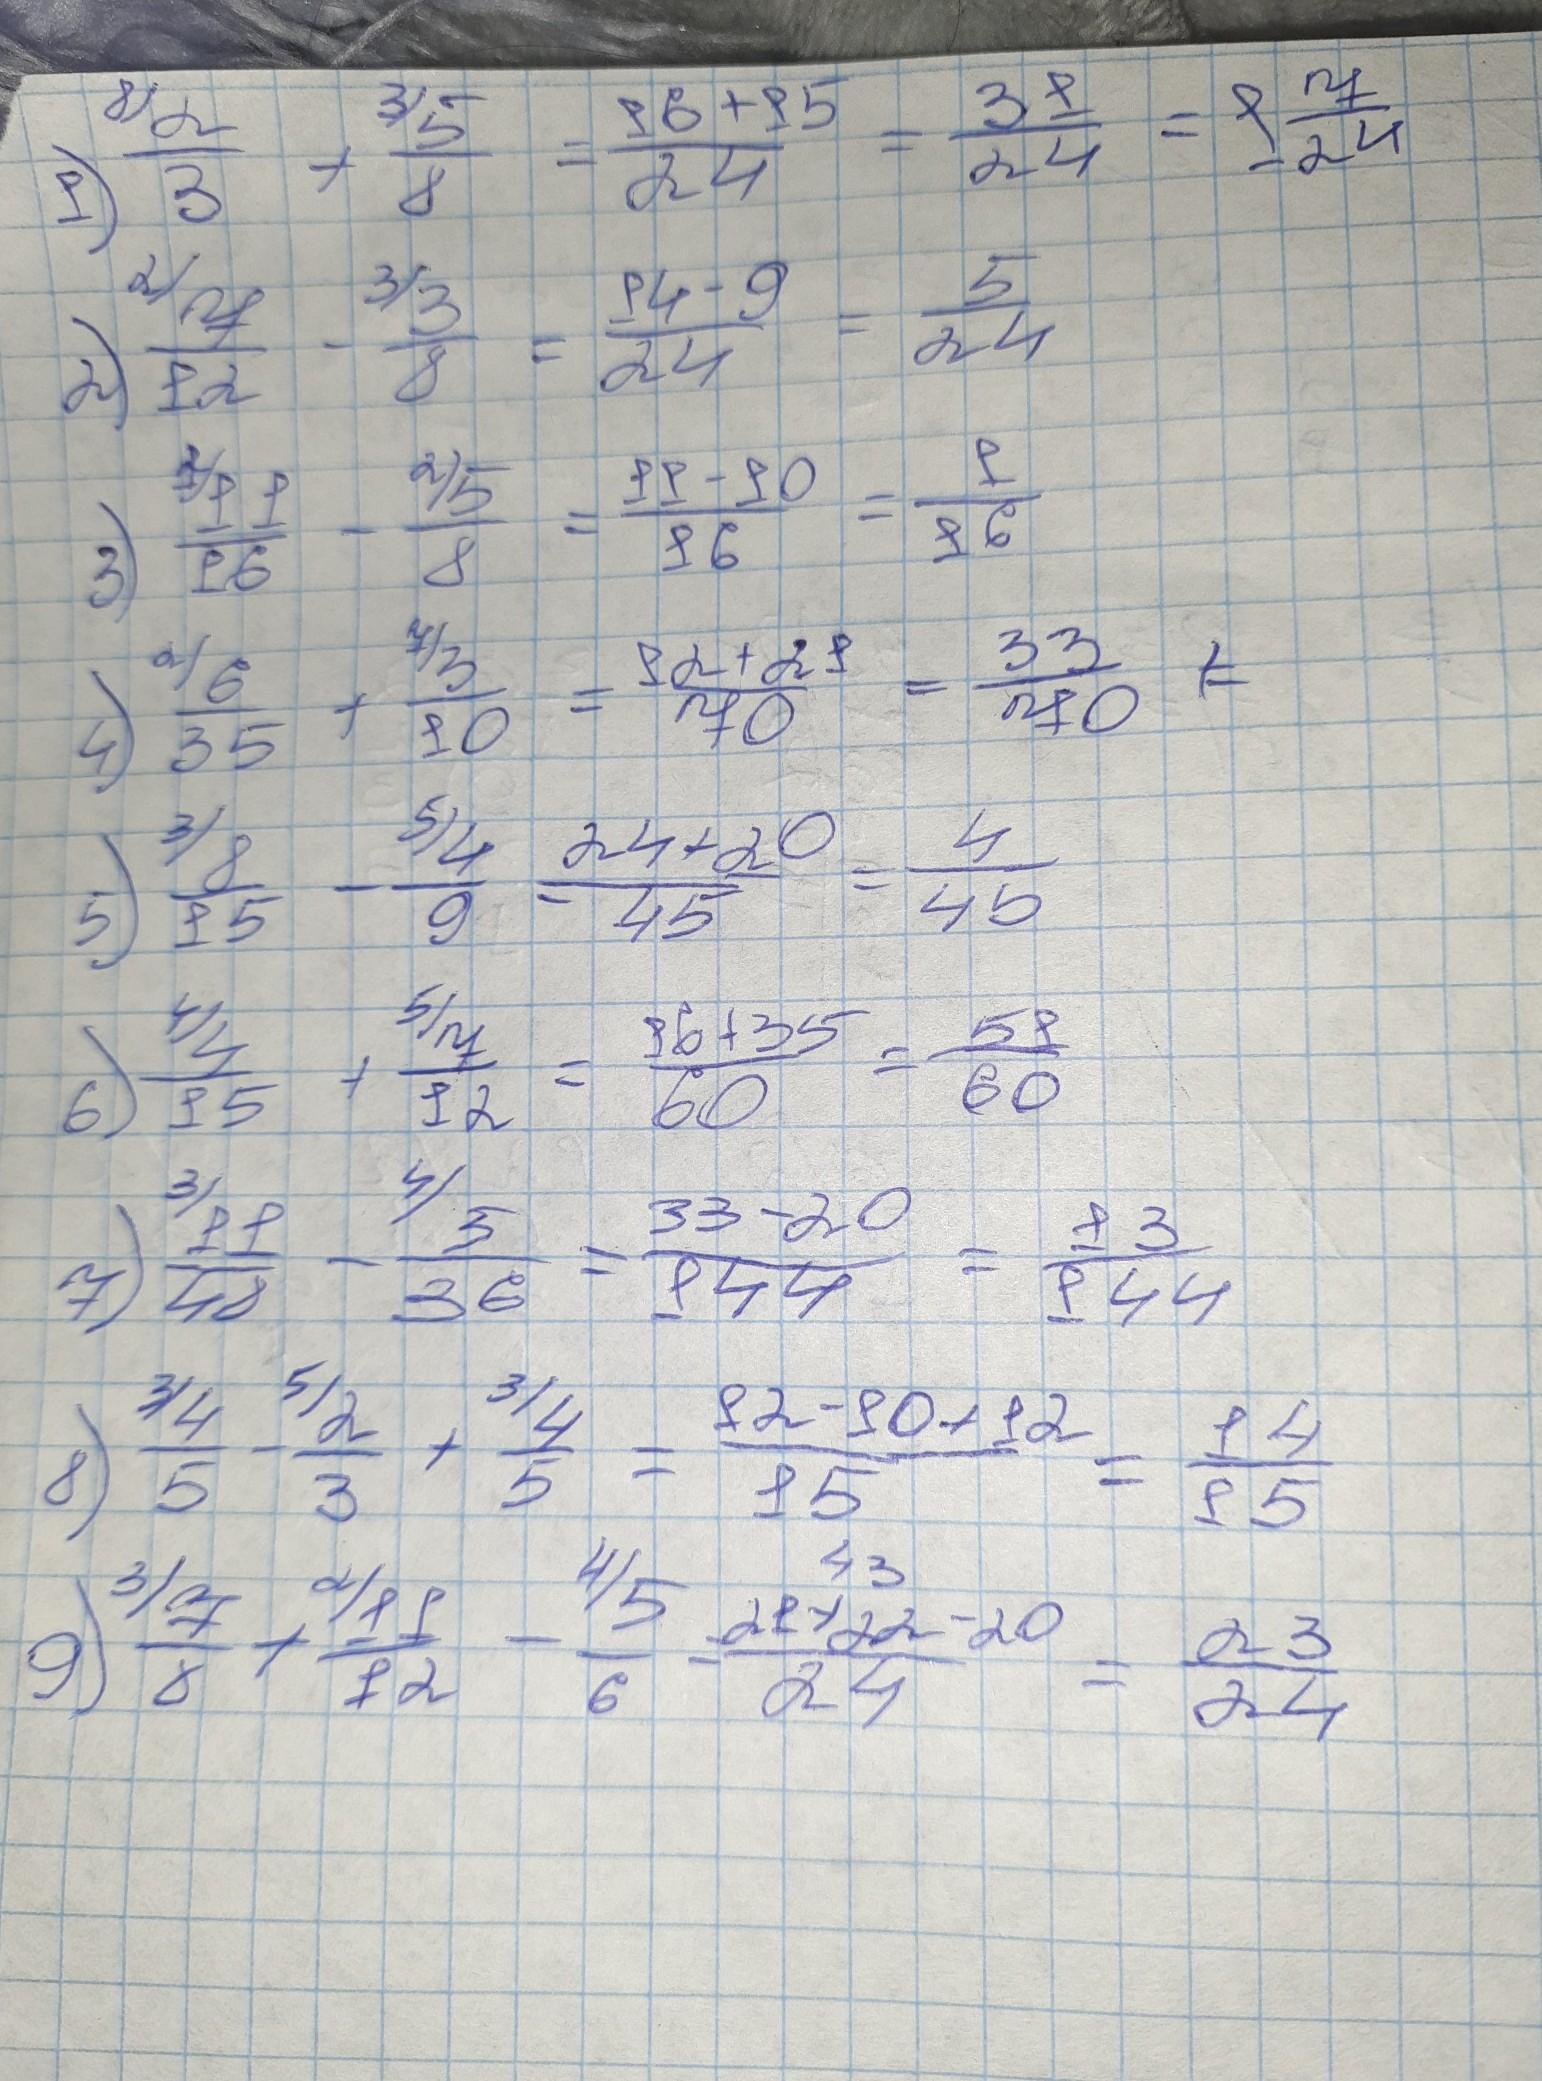 1) 8/2/3 + 3/5/8 = 16+15/24 = 31/24 = 1 7/24
2) 2/7/12 - 3/3/8 = 14-9/24 = 5/24
3) 1/11/16 - 2/5/8 = 11-10/16 = 1/16
4) 2/6/35 + 7/3/10 = 12+21/70 = 33/70 =
5) 3/8/15 - 5/4/9 = 24+20/45 = 4/45
6) 4/4/15 + 5/7/12 = 16+35/60 = 51/60
7) 3/11/48 - 4/5/36 = 33-20/144 = 13/144
8) 3/4/5 - 5/2/3 + 3/4/5 = 12-10+12/15 = 14/15
43
9) 3/7/8 + 2/11/12 - 4/5/6 = 21+22-20/24 = 23/24